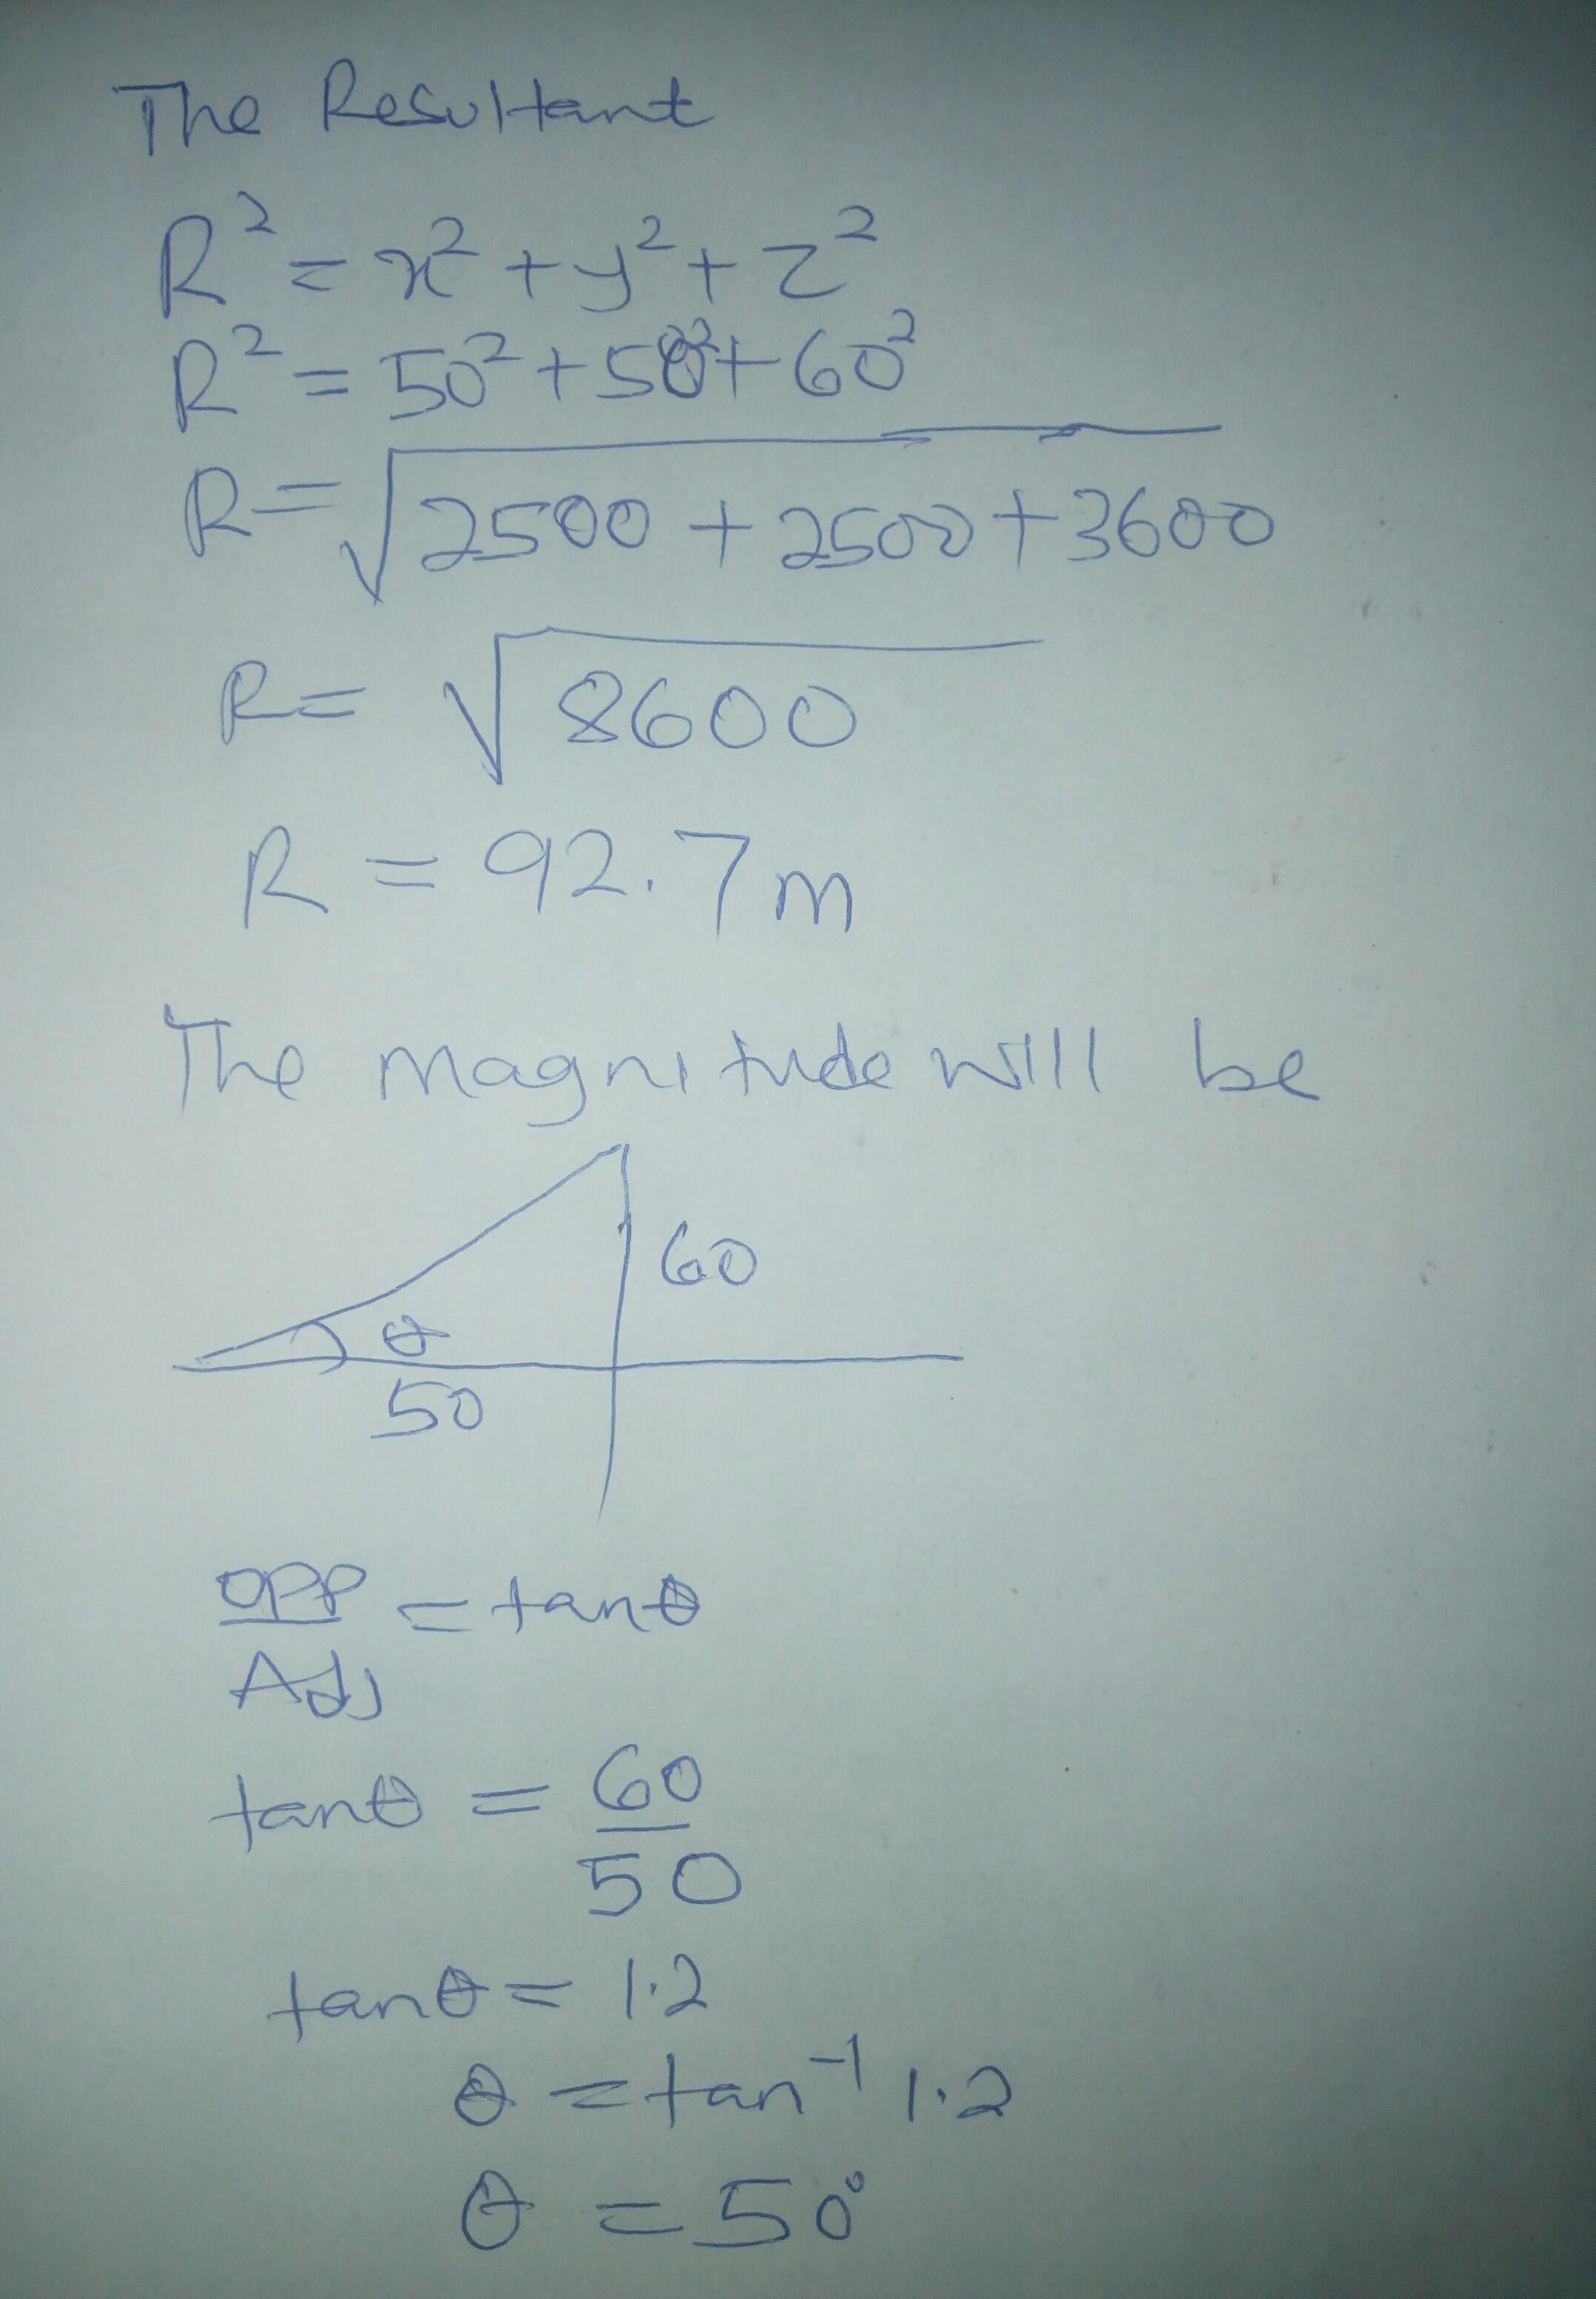 The Resultant
R² = x² + y² + z²
R² = 50² + 50² + 60²
R = √2500 + 2500 + 3600
R = √8600
R = 92.7m
The magnitude will be
60
θ
50
OPP = tanθ
Adj
tanθ = 60
50
tanθ = 1.2
θ = tan⁻¹ 1.2
θ = 50°